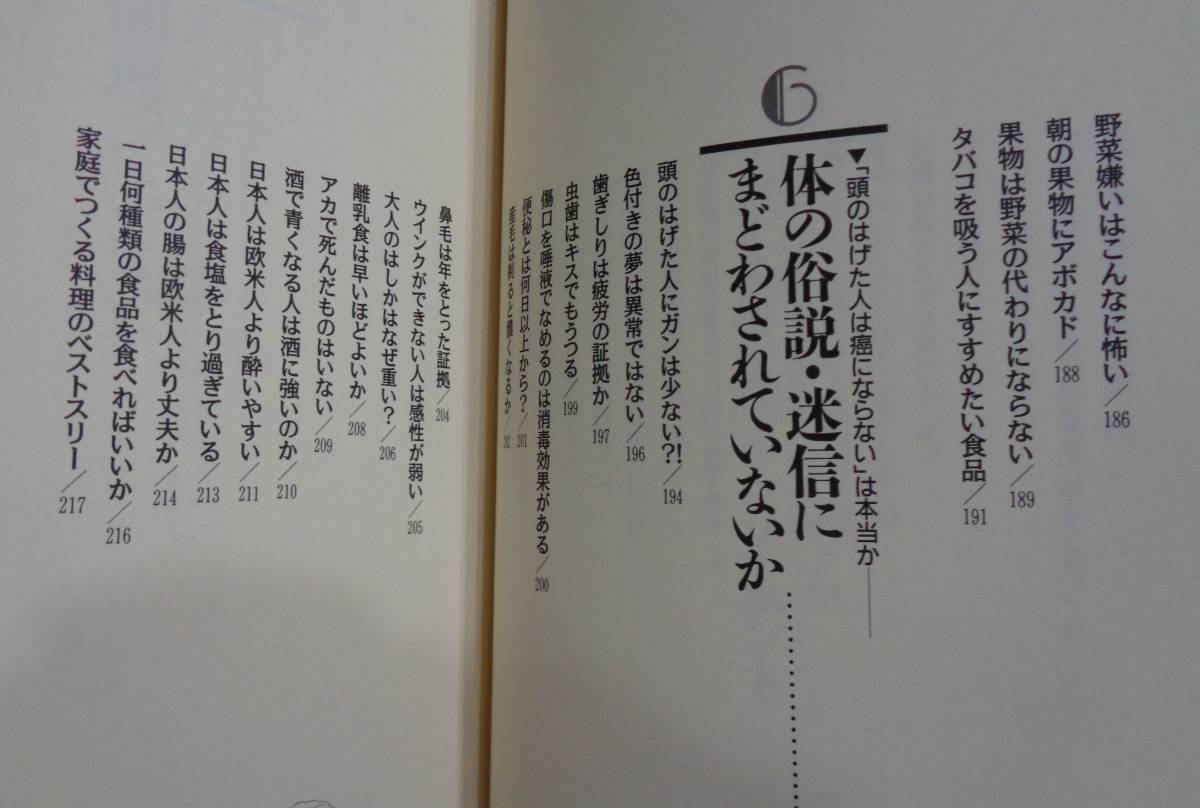 野菜嫌いはこんなに怖い/186
朝の果物にアボカド/188
果物は野菜の代わりにならない/189
タバコを吸う人にすすめたい食品/191
6
▼「頭のはげた人は癌にならない」は本当か——
体の俗説・迷信に
まどわされていないか……………
頭のはげた人にガンは少ない?!/194
色付きの夢は異常ではない/196
歯ぎしりは疲労の証拠か/197
虫歯はキスでもうつる/199
傷口を唾液でなめるのは消毒効果がある/200
便秘とは何日以上から?/201
産毛は剃ると濃くなるか/202
鼻毛は年をとった証拠/204
ウインクができない人は感性が弱い/205
大人のはしかはなぜ重い?/206
離乳食は早いほどよいか/208
アカで死んだものはいない/209
酒で青くなる人は酒に強いのか/210
日本人は欧米人より酔いやすい/211
日本人は食塩をとり過ぎている/213
日本人の腸は欧米人より丈夫か/214
一日何種類の食品を食べればいいか/216
家庭でつくる料理のベストスリー/217